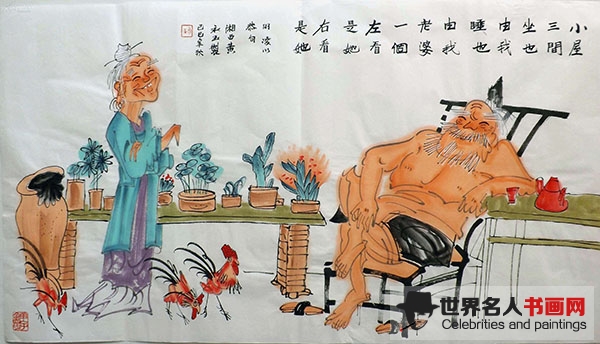 小屋
三間
坐也
由我
睡也
由我
老婆
一個
左看
是她
右看
是她
湘西黄
永玉製
世界名人书画网
Celebrities and paintings